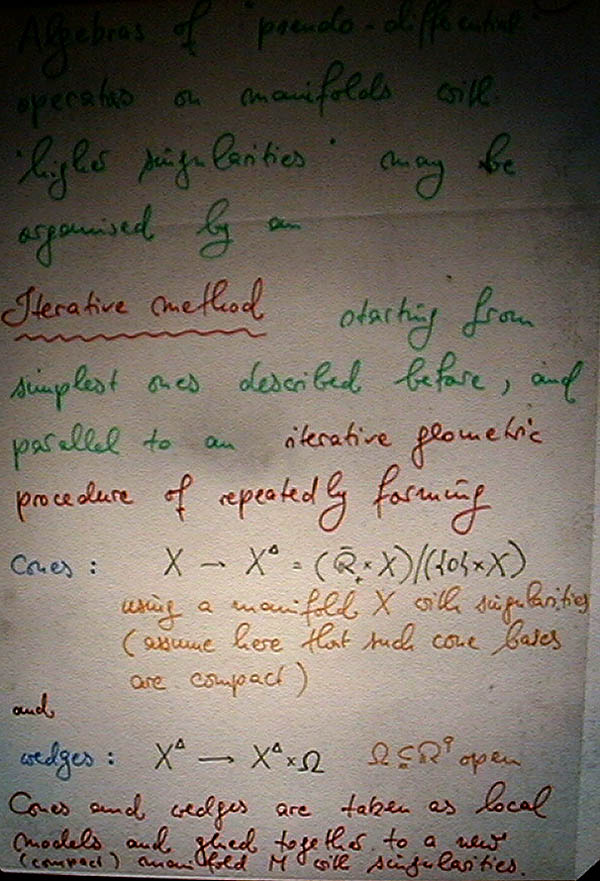 Algebras of "pseudo-differential"
operators on manifolds with
"higher singularities" may be
organised by an
Iterative method starting from
simplest ones described before, and
parallel to an iterative geometric
procedure of repeatedly forming
Cones : X → X^Δ = (R̄₊ × X)/({0} × X)
using a manifold X with singularities
(assume here that such cone bases
are compact)
and
wedges : X^Δ → X^Δ × Ω Ω ⊆ ℝ^q open
Cones and wedges are taken as local
models and glued together to a new
(compact) manifold M with singularities.